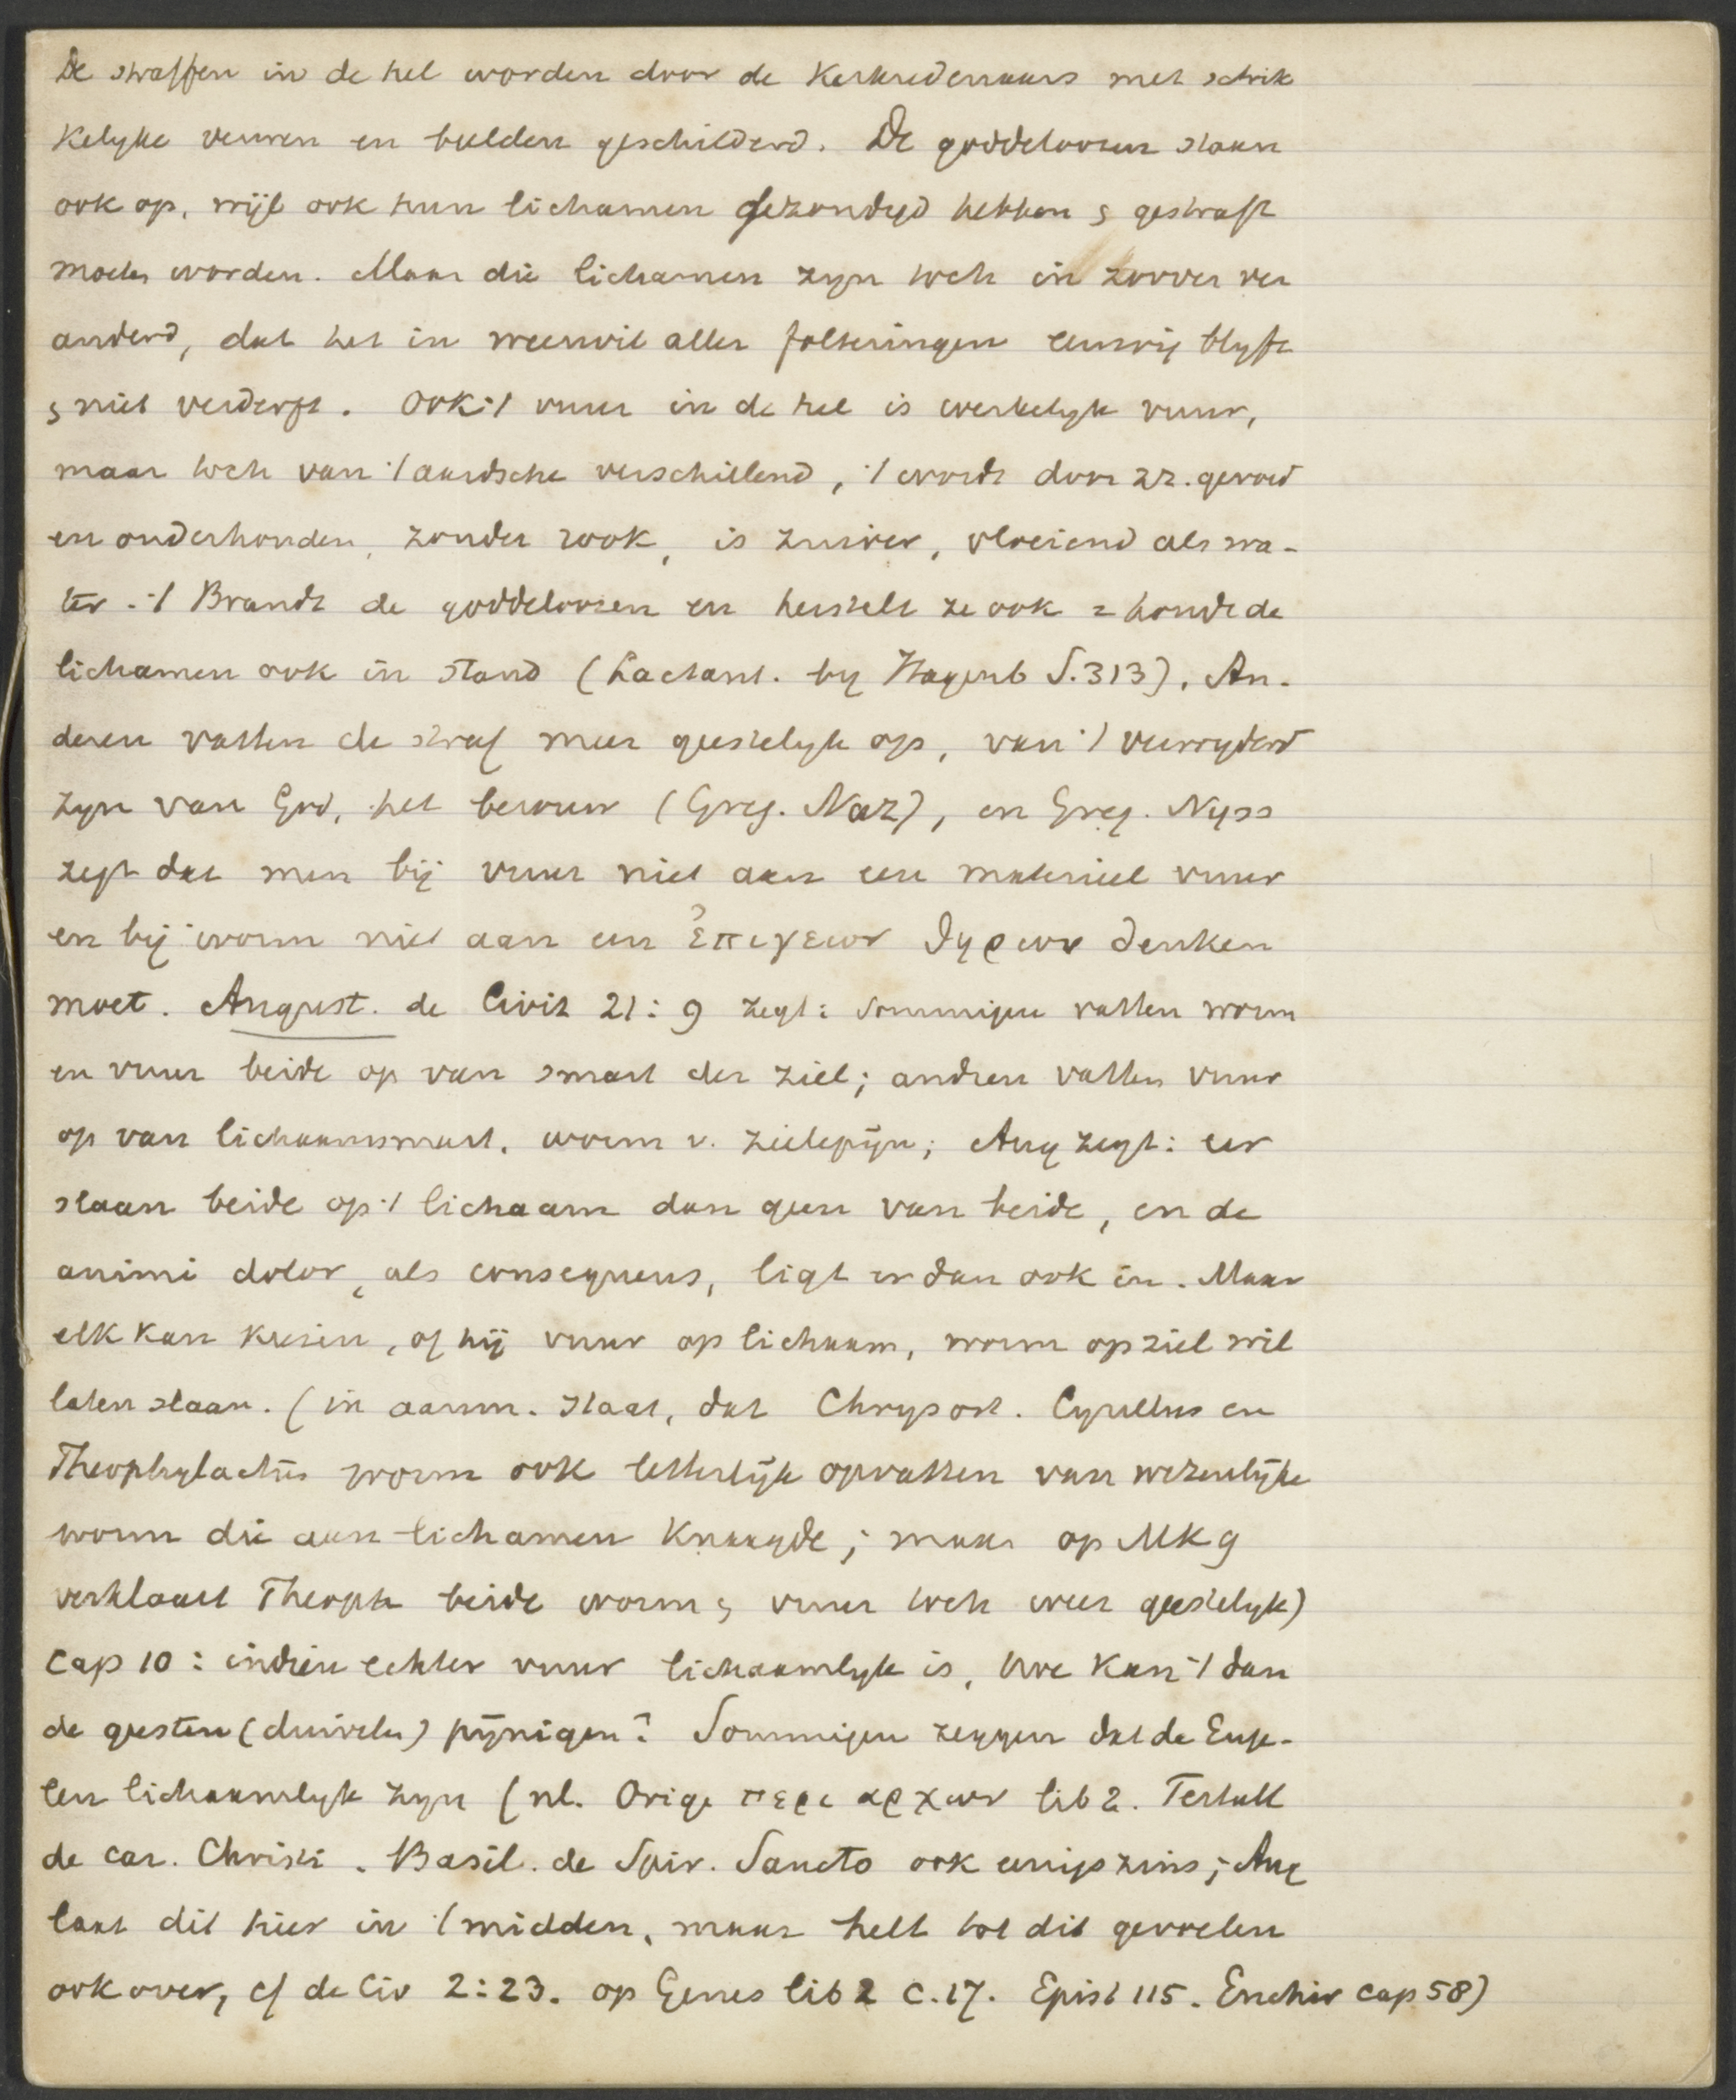 De straffen in de hel worden door de Kerkredenaars met schrik
kelyke veuren en beelden geschilderd. De goddeloozen staan
ook op, wijl ook hun lichamen gezondigd hebben & gestraft
moeten worden. Maar die lichamen zyn toch in zoover ver
anderd, dat het in weerwil aller folteringen eeuwig blyft
& niet verderft. Ook 't vuur in de hel is werkelyk vuur,
maar toch van 't aardsche verschillend, 't wordt door zz. gevoed
en onderhouden, zonder rook, is zuiver, vloeiend als wa-
ter. 't Brandt de goddeloozen en herstelt ze ook = houdt de
lichamen ook in stand (Lactant. by Hagenb S. 313). An-
deren vatten de straf meer geestelyk op, van 't verwyderd
zyn van God, het berouw (Greg. Naz), en Greg. Nyss
zegt dat men bij vuur niet aan een materieel vuur
en bij worm niet aan een ἐπιγειον θηριον denken
moet. August. de Civit 21:9 zegt: Sommigen vatten worm
en vuur beide op van smart der ziel; andren vatten vuur
op van lichaamsmart, worm v. zielepijn; Aug zegt: eer
slaan beide op 't lichaam dan geen van beide, en de
animi dolor, als consequens, ligt er dan ook in. Maar
elk kan kiezen, of hij vuur op lichaam, worm op ziel wil
laten slaan. (in aanm. staat, dat Chrysost. Cyrillus en
Theophylactus worm ook letterlijk opvatten van wezenlijke
worm die aan lichamen knaagde; maar op Mk 9
verklaart Theoph beide worm & vuur toch weer geestelyk)
Cap 10: indien echter vuur lichaamlyk is, hoe kan 't dan
de geesten (duivelen) pijnigen? Sommigen zeggen dat de Enge-
len lichaamlyk zyn (nl. Orige περι αρχων lib 2. Tertull
de car. Christi. Basil. de Spir. Sancto ook enigszins; Aug
laat dit hier in 't midden, maar helt tot dit gevoelen
ook over, cf de Civ 2:23. op Genes lib 2 c. 17. Epist 115. Enchir cap 58)